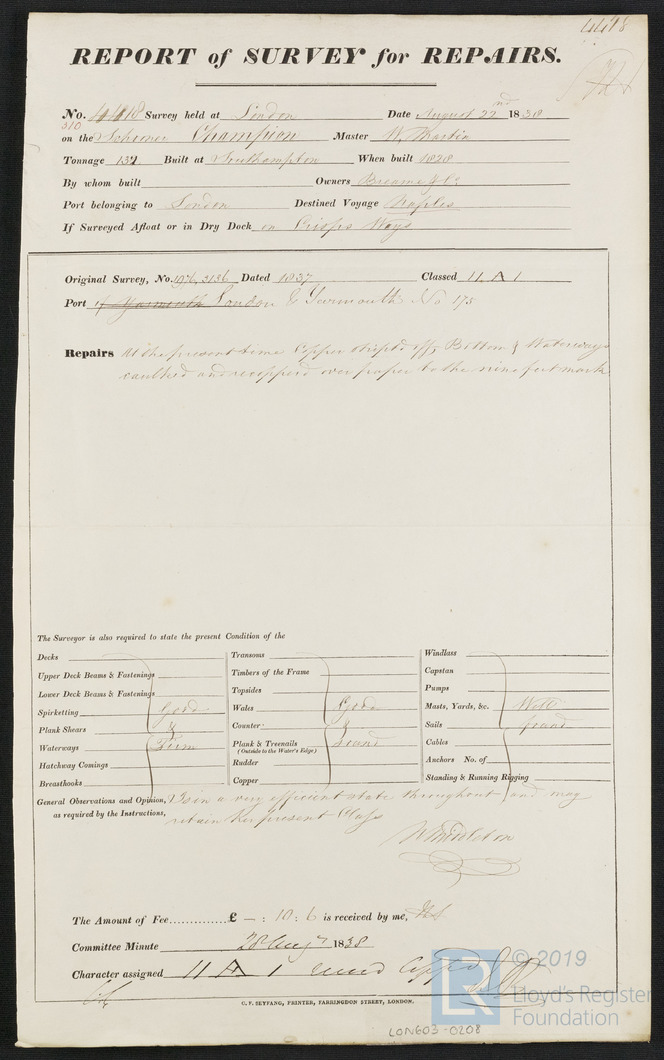 4418
REPORT of SURVEY for REPAIRS.
No. 4418 Survey held at London Date August 22nd 1838
310
on the Schooner Champion Master W. Martin
Tonnage 131 Built at Southampton When built 1828
By whom built Owners & Co
Port belonging to London Destined Voyage Naples
If Surveyed Afloat or in Dry Dock on Crisps Ways
Original Survey, No. 1976, 3136 Dated 1837 Classed 11 A 1
Port of Yarmouth London & Yarmouth No 175
Repairs At the present time Copper stript off, Bottom & Waterways
caulked and recopperd over paper to the nine feet mark
The Surveyor is also required to state the present Condition of the
Decks
Upper Deck Beams & Fastenings
Lower Deck Beams & Fastenings
Spirketting Good
Plank Shears &
Waterways Firm
Hatchway Comings
Breasthooks
Transoms
Timbers of the Frame
Topsides
Wales Good
Counter &
Plank & Treenails Sound
(Outside to the Water's Edge)
Rudder
Copper
Windlass
Capstan
Pumps
Masts, Yards, &c. Well
Sails found
Cables
Anchors No. of
Standing & Running Rigging
General Observations and Opinion, Is in a very efficient state throughout and may
as required by the Instructions, retain her present Class
W Middleton
The Amount of Fee............. £ — : 10 : 6 is received by me,
Committee Minute 28 Augt 1838
Character assigned 11 A 1
C. F. SEYFANG, PRINTER, FARRINGDON STREET, LONDON.
LON603-0208
LR
© 2019
Lloyd's Register
Foundation